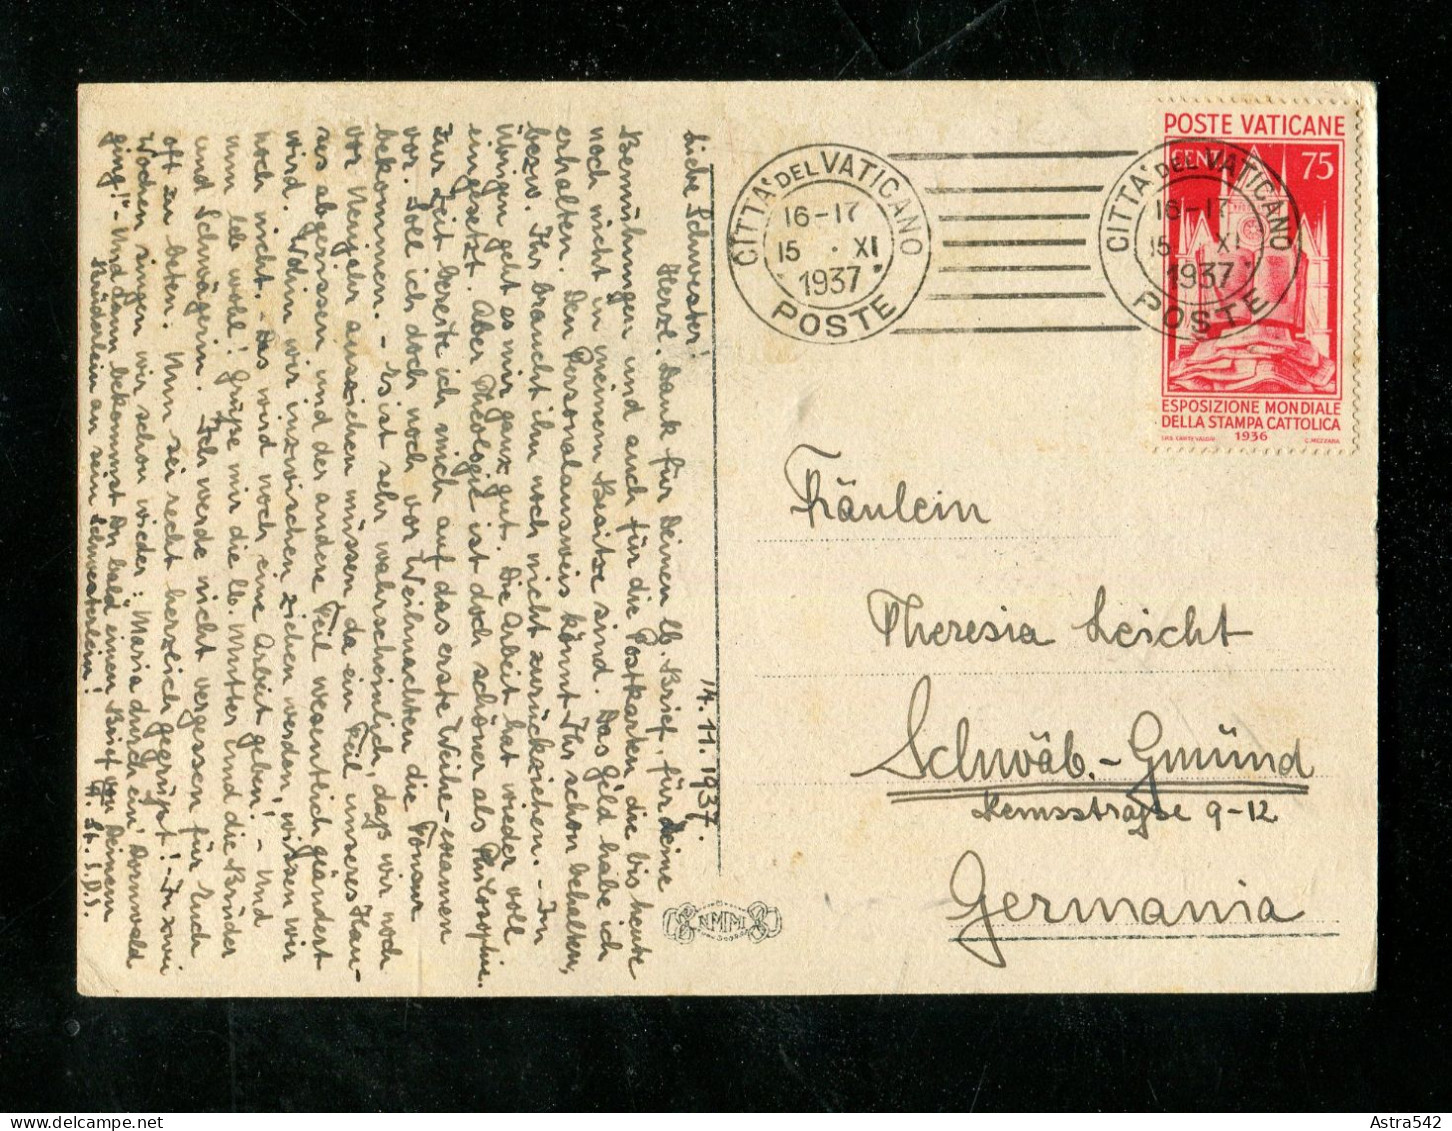 14.11.1937.
Liebe Schwester!
Herzl. Dank für Deinen lb. Brief, für Deine
Bemühungen und auch für die Postkarten, die bis heute
noch nicht in meinem Besitze sind. Das Geld habe ich
erhalten. Den Personalausweis könnt Ihr schon behalten,
bezw. Ihr braucht ihn noch nicht zurückziehen. - Im
Übrigen geht es mir ganz gut. Die Arbeit hat wieder voll
eingesetzt. Aber Theologie ist doch schöner als Philosophie.
Zur Zeit bereite ich mich auf das erste Weihe-examen
vor. Soll ich doch noch vor Weihnachten die Tonsur
bekommen. - Es ist sehr wahrscheinlich, dass wir noch
vor Neujahr ausziehen müssen, da ein Teil unseres Hau-
ses abgerissen und der andere Teil wesentlich geändert
wird. Wohin wir inzwischen ziehen werden, wissen wir
noch nicht. - Das wird noch eine Arbeit geben! - Und
nun leb wohl! Grüße mir die lb. Mutter und die Brüder
und Schwägerin. Ich werde nicht vergessen für Euch
oft zu beten. Nun sei recht herzlich gegrüßt! - In zwei
Wochen singen wir schon wieder: "Maria durch ein' Dornwald
ging!" - Und dann bekommst Du bald einen Brief von Deinem
Brüderlein an sein Schwesterlein! A. St. S.D.S.
CITTA' DEL VATICANO
16-17
15 . XI
1937
POSTE
CITTA' DEL VATICANO
16-17
15 XI
1937
POSTE
POSTE VATICANE
CENT 75
ESPOSIZIONE MONDIALE
DELLA STAMPA CATTOLICA
1936
C. MEZZANA
NMM
Fräulein
Theresia Leicht
Schwäb.-Gmünd
Remsstraße 9-12
Germania
Astra542